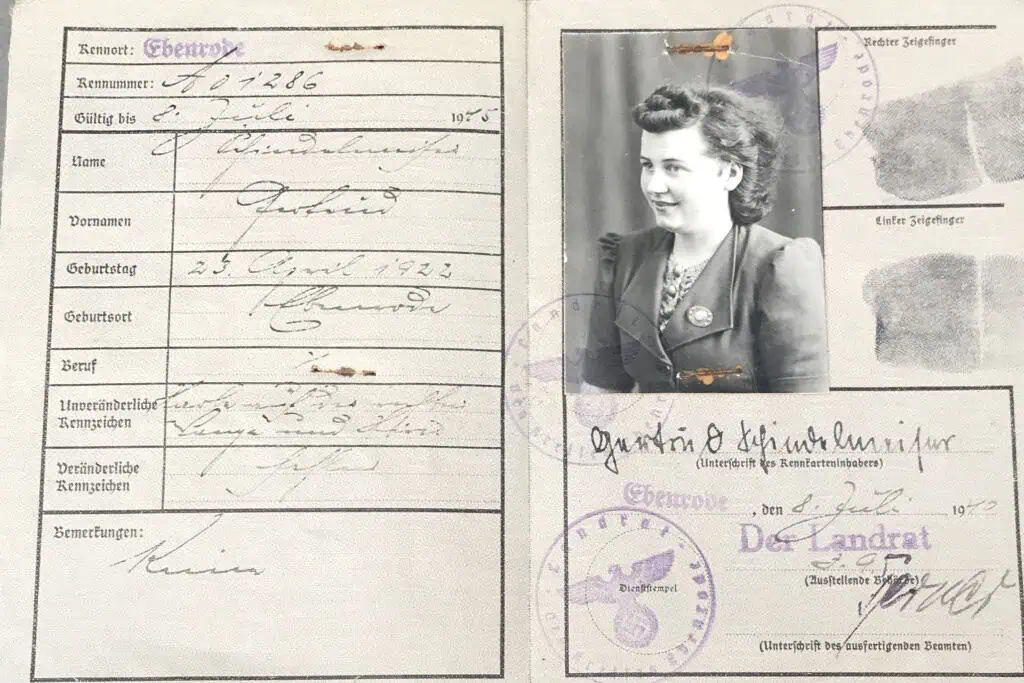 Kennort: Ebenrode
Kennummer: A 01286
Gültig bis 8. Juli 1945
Name Schindelmeiser
Vornamen Gertrud
Geburtstag 23. April 1922
Geburtsort Ebenrode
Beruf
Unveränderliche Kennzeichen
und
Veränderliche Kennzeichen
Bemerkungen:
Keine
Rechter Zeigefinger
Linker Zeigefinger
Gertrud Schindelmeiser
(Unterschrift des Kennkarteninhabers)
Ebenrode, den 8. Juli 1940
Der Landrat
(Ausstellende Behörde)
Dienststempel
(Unterschrift des ausfertigenden Beamten)